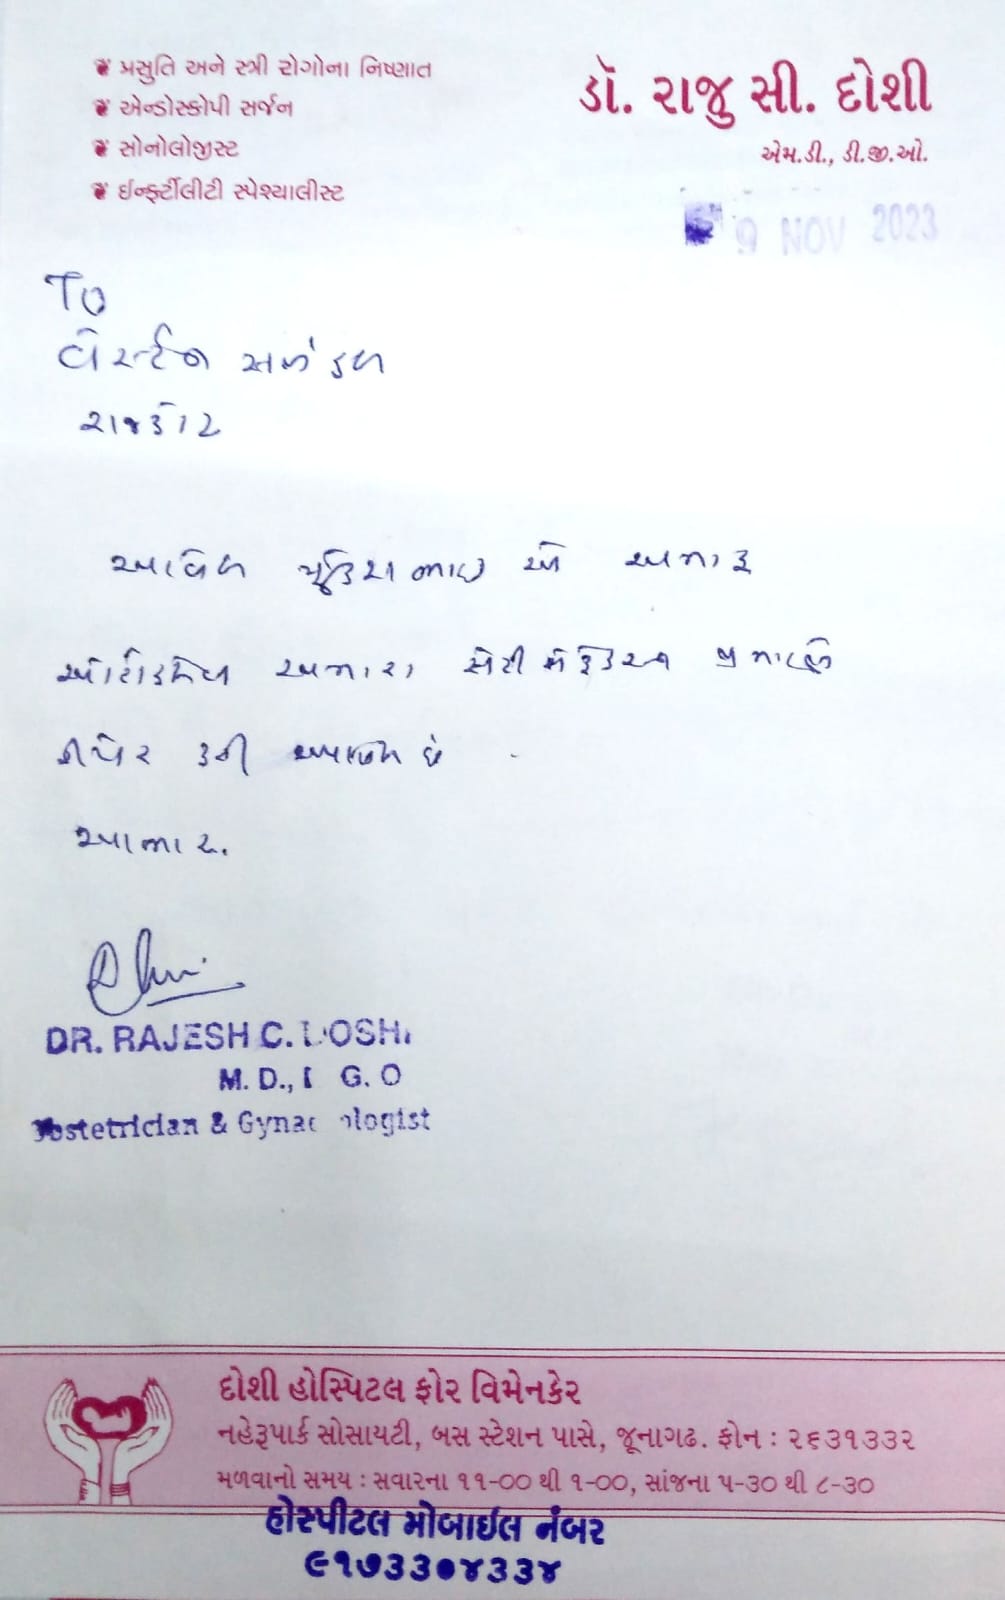 ❦ પ્રસુતિ અને સ્ત્રી રોગોના નિષ્ણાત
❦ એન્ડોસ્કોપી સર્જન
❦ સોનોલોજીસ્ટ
❦ ઈન્ફર્ટીલીટી સ્પેશ્યાલીસ્ટ
ડૉ. રાજુ સી. દોશી
એમ.ડી., ડી.જી.ઓ.
9 NOV 2023
TO
વેસ્ટર્ન
રાજકોટ
એ અમારૂ
અમારા પ્રમાણે
રીપેર કરી આપેલ છે
આભાર.
DR. RAJESH C. DOSHI
M. D., D G. O
Obstetrician & Gynaecologist
દોશી હોસ્પિટલ ફોર વિમેનકેર
નહેરૂપાર્ક સોસાયટી, બસ સ્ટેશન પાસે, જૂનાગઢ. ફોન : ૨૬૩૧૩૩૨
મળવાનો સમય : સવારના ૧૧-૦૦ થી ૧-૦૦, સાંજના ૫-૩૦ થી ૮-૩૦
હોસ્પીટલ મોબાઈલ નંબર
૯૧૭૩૩૦૪૩૩૪